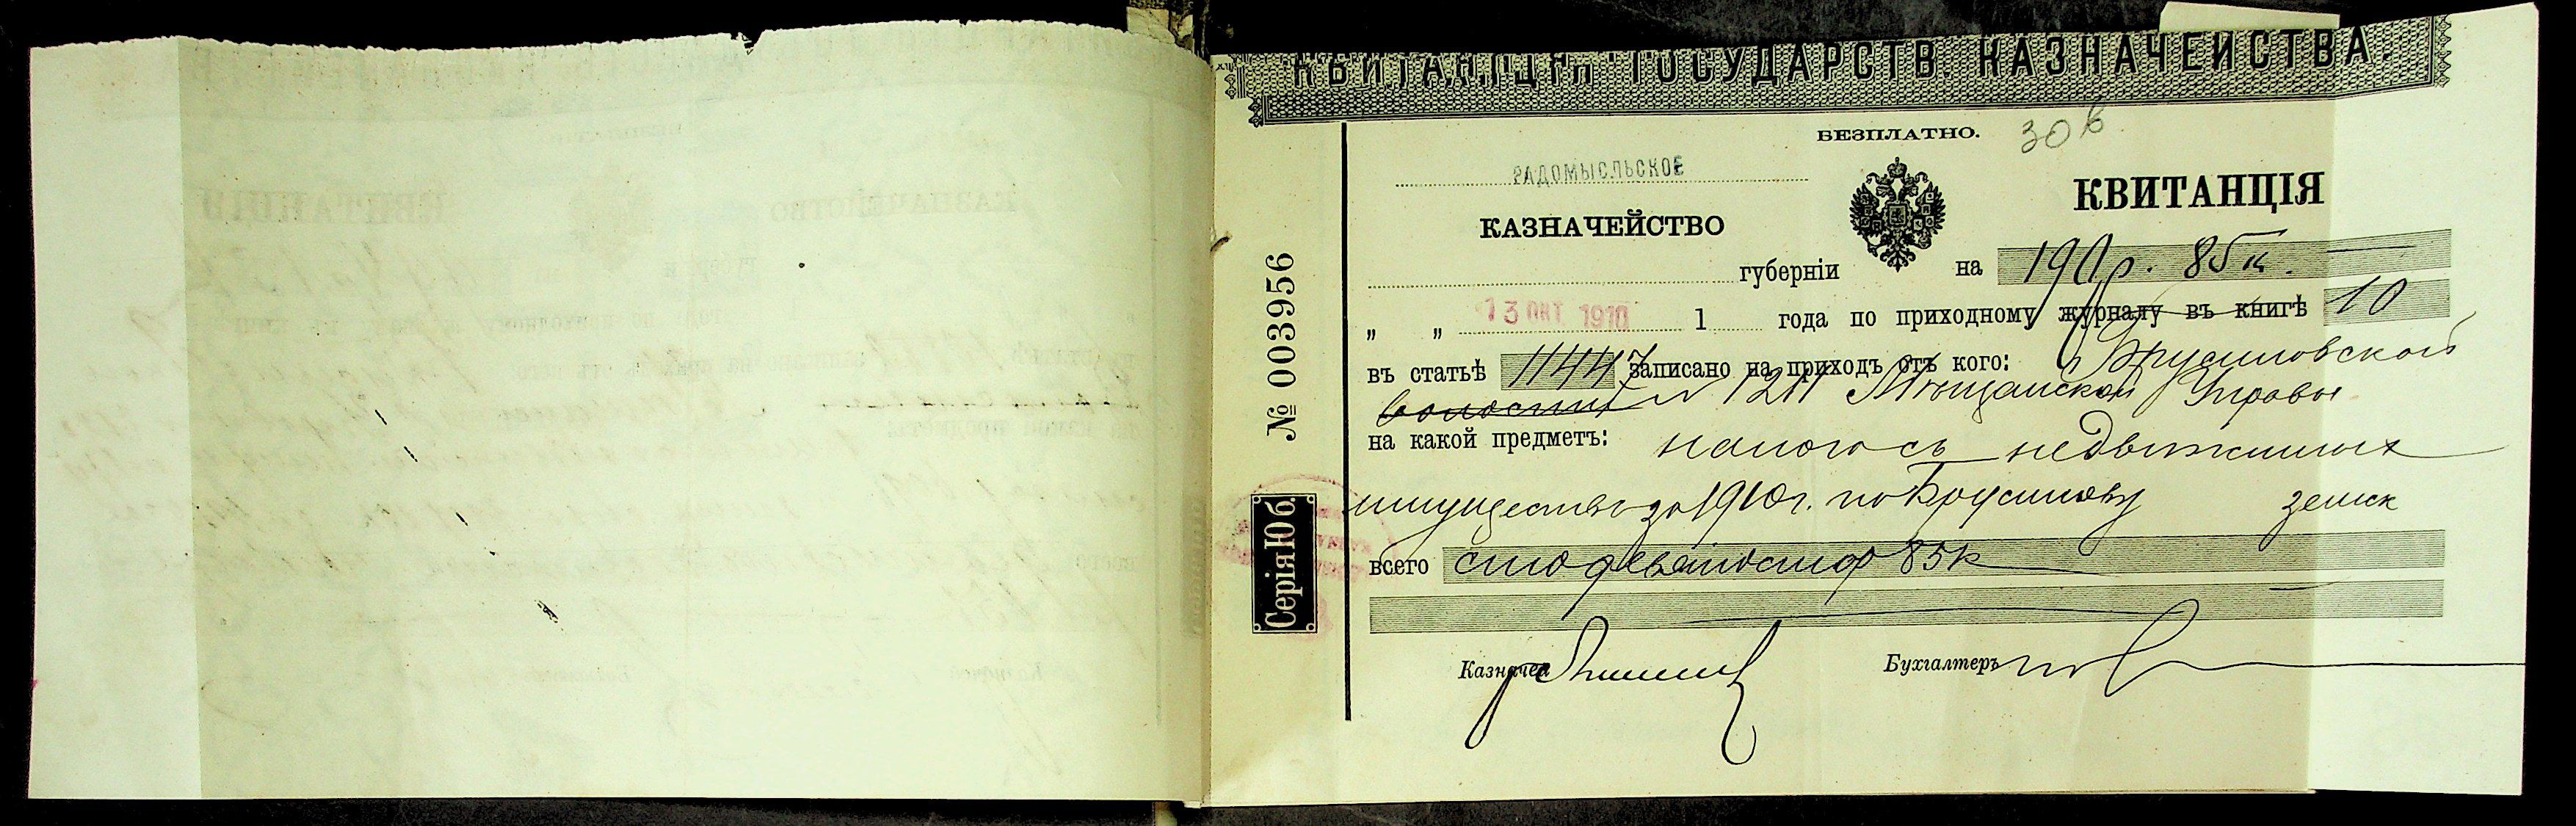 КВИТАНЦІЯ ГОСУДАРСТВ. КАЗНАЧЕЙСТВА.
БЕЗПЛАТНО.
30 в
РАДОМЫСЛЬСКОЕ
КАЗНАЧЕЙСТВО
КВИТАНЦІЯ
губерніи
на 190 р. 85 к.
„ „ 13 ОКТ 1910 1 года по приходному журналу въ книгѣ 10
въ статьѣ 11447 записано на приходъ отъ кого: Брусиловской
№ 1211 Мѣщанской Управы
на какой предметъ: налогъ съ недвижимыхъ
имуществъ за 1910 г. по Брусилову земск
всего сто девяносто р 85 к
Казначей
Бухгалтеръ
№ 003956
Серія Юб.